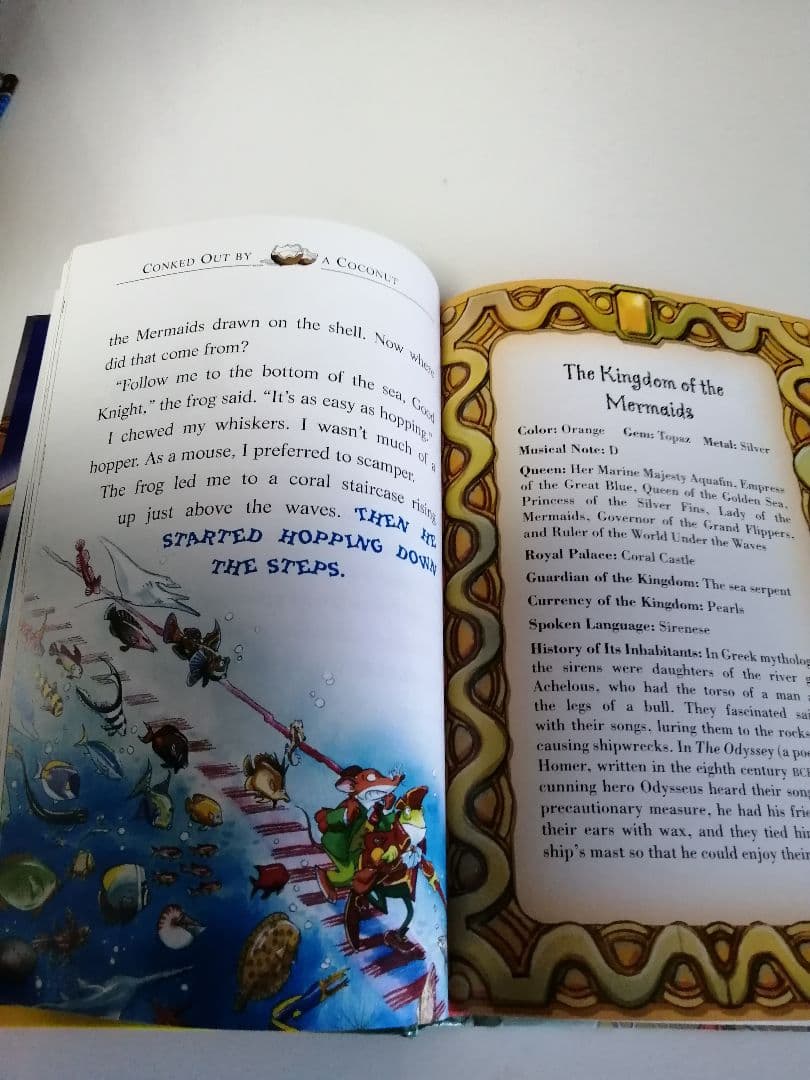 CONKED OUT BY A COCONUT
the Mermaids drawn on the shell. Now where
did that come from?
"Follow me to the bottom of the sea, Good
Knight," the frog said. "It's as easy as hopping."
I chewed my whiskers. I wasn't much of a
hopper. As a mouse, I preferred to scamper.
The frog led me to a coral staircase rising
up just above the waves. THEN HE
STARTED HOPPING DOWN
THE STEPS.
The Kingdom of the
Mermaids
Color: Orange Gem: Topaz Metal: Silver
Musical Note: D
Queen: Her Marine Majesty Aquafin, Empress
of the Great Blue, Queen of the Golden Sea,
Princess of the Silver Fins, Lady of the
Mermaids, Governor of the Grand Flippers,
and Ruler of the World Under the Waves
Royal Palace: Coral Castle
Guardian of the Kingdom: The sea serpent
Currency of the Kingdom: Pearls
Spoken Language: Sirenese
History of Its Inhabitants: In Greek mytholog
the sirens were daughters of the river g
Achelous, who had the torso of a man
the legs of a bull. They fascinated sai
with their songs, luring them to the rocks
causing shipwrecks. In The Odyssey (a poe
Homer, written in the eighth century BC
cunning hero Odysseus heard their song
precautionary measure, he had his frie
their ears with wax, and they tied him
ship's mast so that he could enjoy their